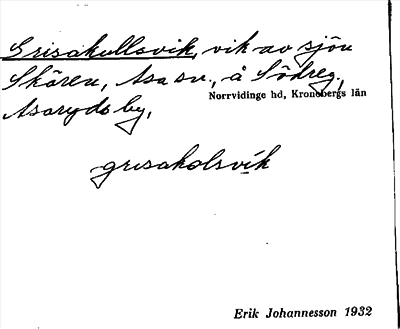 Grisakullsvik, vik av sjön
Skären, Asa sn., å Södreg.,
Norrvidinge hd, Kronobergs län
Asaryds by,
grisakolsvik
Erik Johannesson 1932